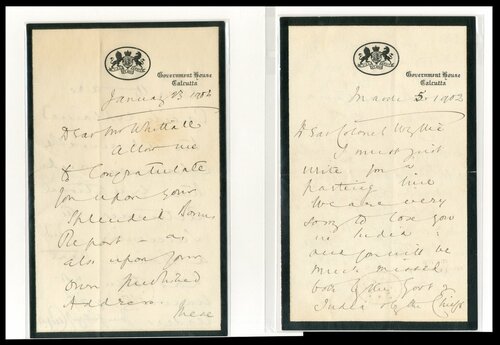 Government House
Calcutta
January 23 1902
Dear Mr Whittall
Allow me
to Congratulate
you upon your
Splendid Bonus
Report - as
also upon your
own published
Address.
These
Government House
Calcutta
March 5 1902
Dear Colonel Wyllie
I must just
write you a
parting line
We are very
sorry to lose you
in India:
and you will be
much missed
both by the Govt of
India & by the Chiefs